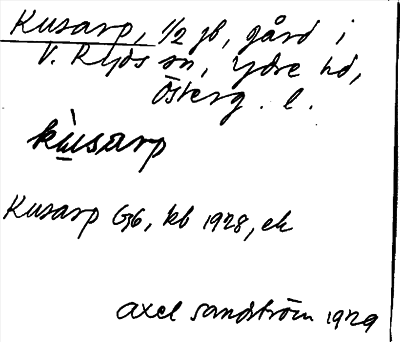 Kusarp, 1/2 jb, gård i
V. Ryds sn, Ydre hd,
Österg. l.
kùsarp
Kusarp G6, kb 1928, ek
Axel Sandström 1929